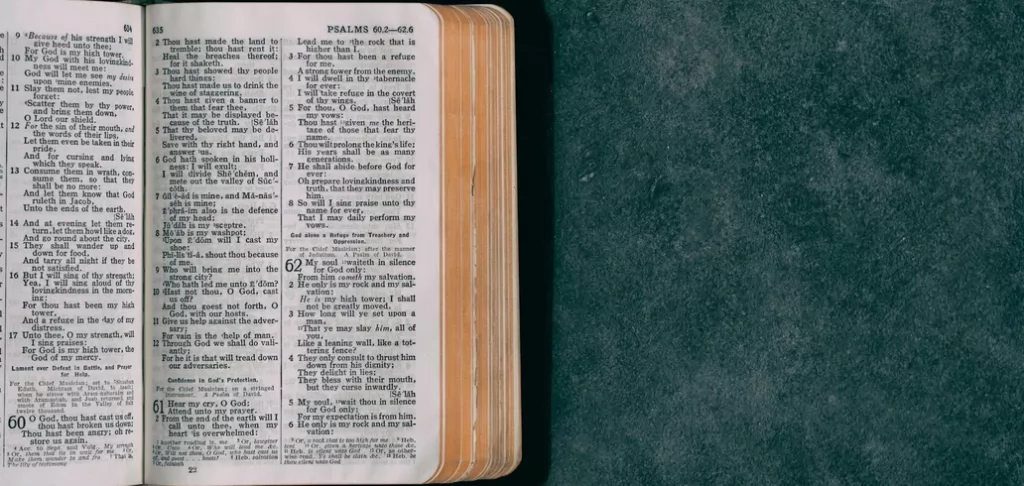 634
9 Because of his strength I will
give heed unto thee;
For God is my high tower.
10 My God with his lovingkind-
ness will meet me:
God will let me see my desire
upon mine enemies.
11 Slay them not, lest my people
forget:
Scatter them by thy power,
and bring them down,
O Lord our shield.
12 For the sin of their mouth, and
the words of their lips,
Let them even be taken in their
pride,
And for cursing and lying
which they speak.
13 Consume them in wrath, con-
sume them, so that they
shall be no more:
And let them know that God
ruleth in Jacob,
Unto the ends of the earth.
[Sē'lăh
14 And at evening let them re-
turn, let them howl like a dog,
And go round about the city.
15 They shall wander up and
down for food,
And tarry all night if they be
not satisfied.
16 But I will sing of thy strength;
Yea, I will sing aloud of thy
lovingkindness in the morn-
ing:
For thou hast been my high
tower,
And a refuge in the day of my
distress.
17 Unto thee, O my strength, will
I sing praises:
For God is my high tower, the
God of my mercy.
Lament over Defeat in Battle, and Prayer
for Help.
60 O God, thou hast cast us off,
thou hast broken us down;
Thou hast been angry; oh re-
store us again.
635
2 Thou hast made the land to
tremble; thou hast rent it:
Heal the breaches thereof;
for it shaketh.
3 Thou hast showed thy people
hard things:
Thou hast made us to drink the
wine of staggering.
4 Thou hast given a banner to
them that fear thee,
That it may be displayed be-
cause of the truth. [Sē'lăh
5 That thy beloved may be de-
livered,
Save with thy right hand, and
answer us.
6 God hath spoken in his holi-
ness: I will exult;
I will divide Shē'chĕm, and
mete out the valley of Sŭc'-
cŏth.
7 Gĭl'ė-ăd is mine, and Mȧ-năs'-
sĕh is mine;
Ē'phrȧ-ĭm also is the defence
of my head;
Jū'dăh is my sceptre.
8 Mō'ăb is my washpot;
Upon Ē'dŏm will I cast my
shoe:
Phĭ-lĭs'tĭ-ȧ, shout thou because
of me.
9 Who will bring me into the
strong city?
Who hath led me unto Ē'dŏm?
10 Hast not thou, O God, cast
us off?
And thou goest not forth, O
God, with our hosts.
11 Give us help against the adver-
sary;
For vain is the help of man.
12 Through God we shall do vali-
antly;
For he it is that will tread down
our adversaries.
Confidence in God's Protection.
For the Chief Musician; on a stringed
instrument. A Psalm of David.
61 Hear my cry, O God;
Attend unto my prayer.
2 From the end of the earth will I
call unto thee, when my
heart is overwhelmed:
22
PSALMS 60.2—62.6
Lead me to the rock that is
higher than I.
3 For thou hast been a refuge
for me,
A strong tower from the enemy.
4 I will dwell in thy tabernacle
for ever:
I will take refuge in the covert
of thy wings. [Sē'lăh
5 For thou, O God, hast heard
my vows:
Thou hast given me the heri-
tage of those that fear thy
name.
6 Thou wilt prolong the king's life;
His years shall be as many
generations.
7 He shall abide before God for
ever:
Oh prepare lovingkindness and
truth, that they may preserve
him.
8 So will I sing praise unto thy
name for ever,
That I may daily perform my
vows.
God alone a Refuge from Treachery and
Oppression.
For the Chief Musician; after the manner
of Jeduthun. A Psalm of David.
62 My soul waiteth in silence
for God only:
From him cometh my salvation.
2 He only is my rock and my sal-
vation:
He is my high tower; I shall
not be greatly moved.
3 How long will ye set upon a
man,
That ye may slay him, all of
you,
Like a leaning wall, like a tot-
tering fence?
4 They only consult to thrust him
down from his dignity;
They delight in lies;
They bless with their mouth,
but they curse inwardly.
[Sē'lăh
5 My soul, wait thou in silence
for God only;
For my expectation is from him.
6 He only is my rock and my sal-
vation: